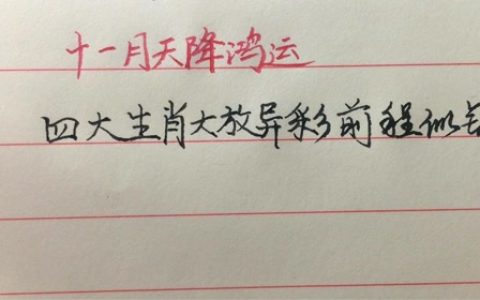 十一月天降鸿运
四大生肖大放异彩前程似